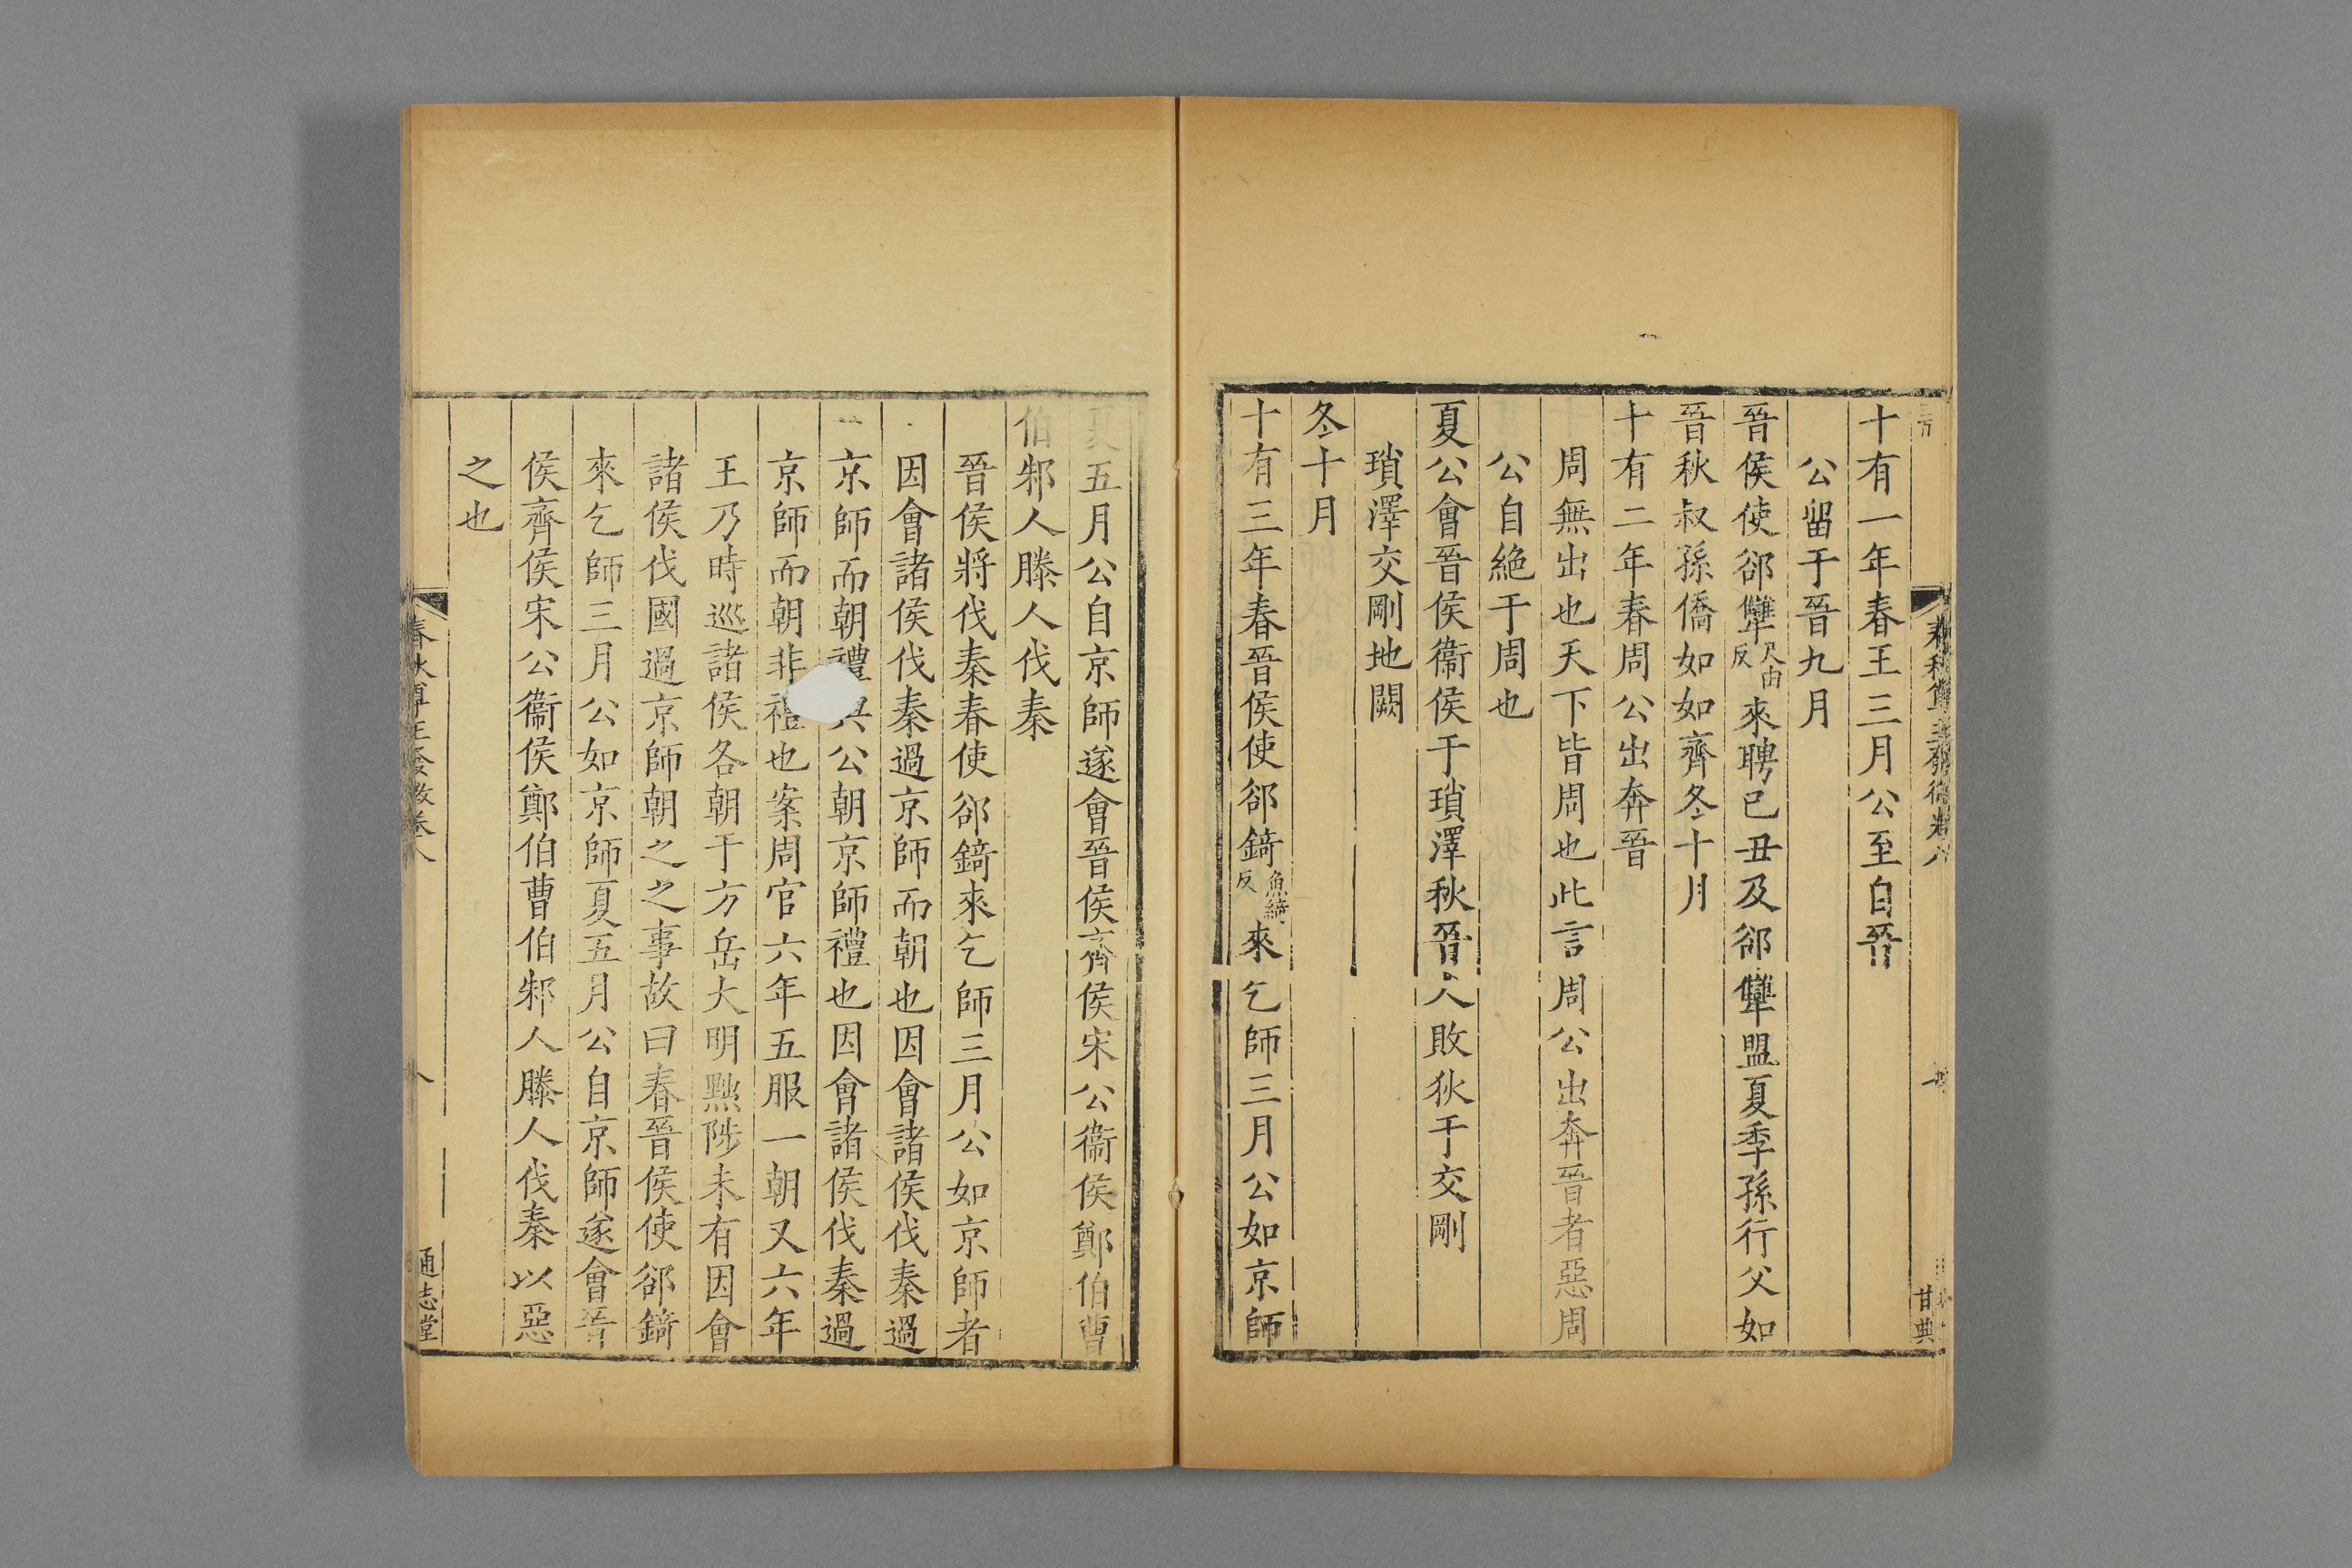 十有一年春王三月公至自晉
公留于晉九月
晉侯使郤犨尺由反來聘已丑及郤犨盟夏季孫行父如
晉秋叔孫僑如如齊冬十月
十有二年春周公出奔晉
周無出也天下皆周也此言周公出奔晉者惡周
公自絶于周也
夏公會晉侯衞侯于瑣澤秋晉人敗狄于交剛
瑣澤交剛地闕
冬十月
十有三年春晉侯使郤錡魚綺反來乞師三月公如京師
夏五月公自京師遂會晉侯齊侯宋公衞侯鄭伯曹
伯邾人滕人伐秦
晉侯將伐秦春使郤錡來乞師三月公如京師者
因會諸侯伐秦過京師而朝也因會諸侯伐秦過
京師而朝禮與公朝京師禮也因會諸侯伐秦過
京師而朝非禮也案周官六年五服一朝又六年
王乃時巡諸侯各朝于方岳大明黜陟未有因會
諸侯伐國過京師朝之之事故曰春晉侯使郤錡
來乞師三月公如京師夏五月公自京師遂會晉
侯齊侯宋公衞侯鄭伯曹伯邾人滕人伐秦以惡
之也
春秋尊王發微卷八
八
通志堂
甘典